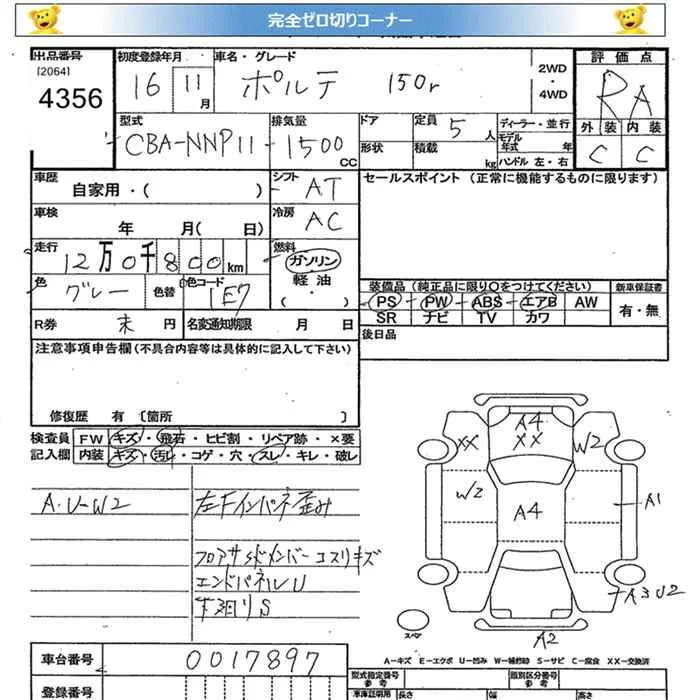 完全ゼロ切りコーナー
出品番号
[2064]
4356
初度登録年月
16 11月
車名・グレード
ポルテ 150r
2WD
・
4WD
評価点
RA
外装 内装
C C
型式
CBA-NNP11
排気量
1500
CC
ドア
形状
定員 5 人
積載 kg
ディーラー・並行
モデル年式 年
ハンドル 左・右
車歴
自家用・( )
シフト AT
車検
年 月( 日)
冷房 AC
走行
12万0千800km
燃料
ガソリン
・
軽油
( ・ )
色 グレー
色替
色コード 1E7
R券 未 円
名変通知期限 月 日
セールスポイント (正常に機能するものに限ります)
装備品 (純正品に限り〇をつけてください)
PS PW ABS エアB AW
SR ナビ TV カワ
新車保証書
有・無
後日品
注意事項申告欄 (不具合内容等は具体的に記入して下さい)
修復歴 有 〔箇所 〕
検査員
記入欄
FW キズ・飛石・ヒビ割・リペア跡・×要
内装 キズ・汚れ・コゲ・穴・スレ・キレ・破レ
A・U-W2
左Fインパネ歪み
フロアサイドメンバーコスリキズ
エンドパネルU
下廻りS
A4
XX
XX
W2
W2
A4
A1
A3 U2
A2
スペア
A-キズ E-エクボ U-凹み W-補修跡 S-サビ C-腐食 XX-交換済
車台番号
0017897
登録番号
型式指定番号
参考
類別区分番号
参考
車庫証明用
長さ
幅
高さ